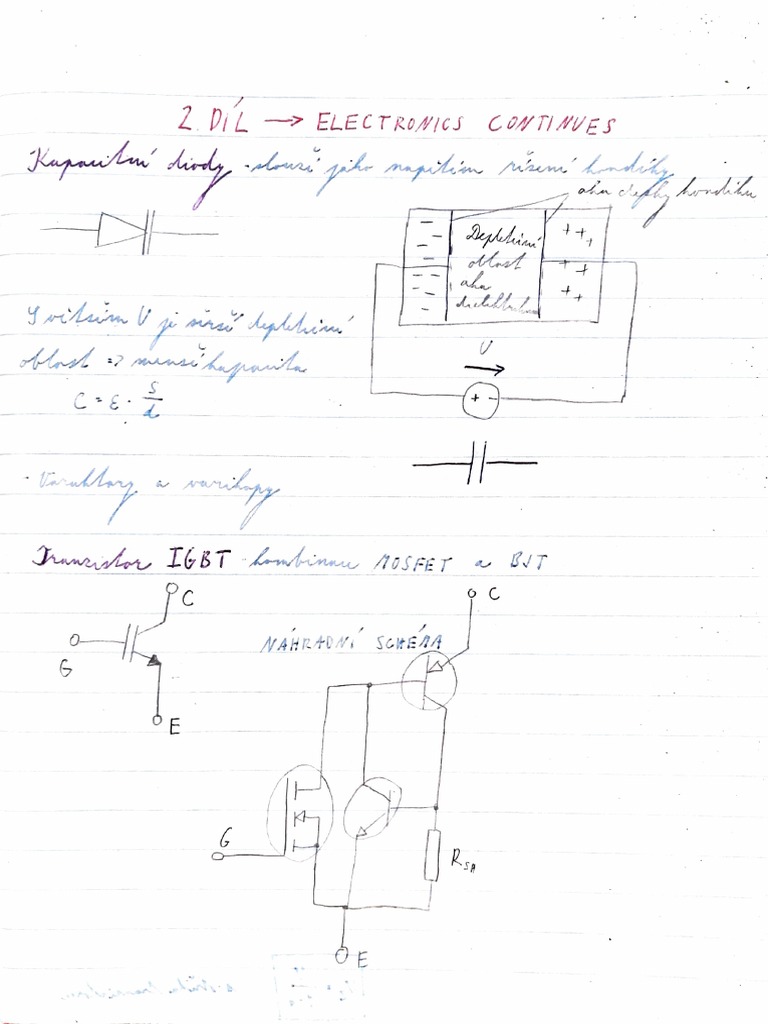 2. DÍL → ELECTRONICS CONTINUES
Kapacitní diody - slouží jako napětím řízené kondíky
aka desky kondíku
- - - - - - - - - -
+ + + + + + + +
Depletiční
oblast
aka
dielektrikum
S větším U je širší depletiční
oblast => menší kapacita
C = ε · S/d
U
+ -
- Varaktory a varikapy
Tranzistor IGBT - kombinace MOSFET a BJT
C
G
E
NÁHRADNÍ SCHÉMA
C
G
R_SA
E